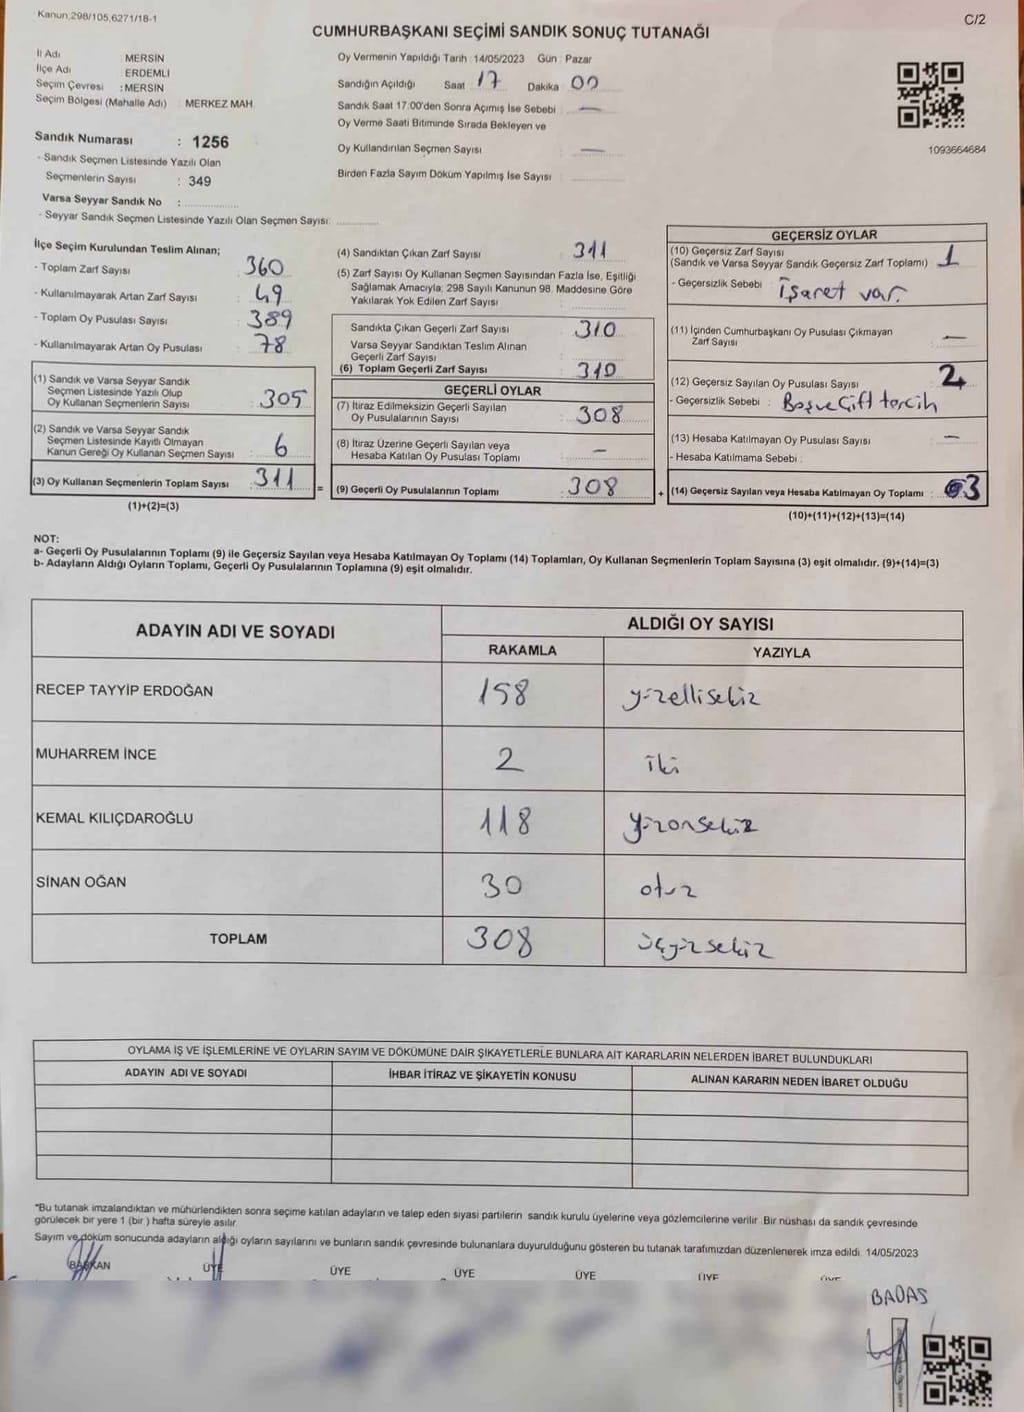 Kanun;298/105,6271/18-1
C/2
CUMHURBAŞKANI SEÇİMİ SANDIK SONUÇ TUTANAĞI
İl Adı : MERSİN
İlçe Adı : ERDEMLİ
Seçim Çevresi : MERSİN
Seçim Bölgesi (Mahalle Adı) MERKEZ MAH.
Oy Vermenin Yapıldığı Tarih :14/05/2023 Gün : Pazar
Sandığın Açıldığı Saat 17 Dakika 00
Sandık Saat 17:00'den Sonra Açımış İse Sebebi : —
Oy Verme Saati Bitiminde Sırada Bekleyen ve
Oy Kullandırılan Seçmen Sayısı : —
Birden Fazla Sayım Döküm Yapılmış İse Sayısı :
1093664684
Sandık Numarası : 1256
- Sandık Seçmen Listesinde Yazılı Olan
Seçmenlerin Sayısı : 349
Varsa Seyyar Sandık No :
- Seyyar Sandık Seçmen Listesinde Yazılı Olan Seçmen Sayısı:
İlçe Seçim Kurulundan Teslim Alınan;
- Toplam Zarf Sayısı : 360
- Kullanılmayarak Artan Zarf Sayısı : 49
- Toplam Oy Pusulası Sayısı : 389
- Kullanılmayarak Artan Oy Pusulası : 78
(1) Sandık ve Varsa Seyyar Sandık
Seçmen Listesinde Yazılı Olup
Oy Kullanan Seçmenlerin Sayısı : 305
(2) Sandık ve Varsa Seyyar Sandık
Seçmen Listesinde Kayıtlı Olmayan
Kanun Gereği Oy Kullanan Seçmen Sayısı : 6
(3) Oy Kullanan Seçmenlerin Toplam Sayısı : 311
(1)+(2)=(3)
(4) Sandıktan Çıkan Zarf Sayısı : 311
(5) Zarf Sayısı Oy Kullanan Seçmen Sayısından Fazla İse, Eşitliği
Sağlamak Amacıyla; 298 Sayılı Kanunun 98. Maddesine Göre
Yakılarak Yok Edilen Zarf Sayısı :
Sandıkta Çıkan Geçerli Zarf Sayısı : 310
Varsa Seyyar Sandıktan Teslim Alınan
Geçerli Zarf Sayısı :
(6) Toplam Geçerli Zarf Sayısı : 310
GEÇERLİ OYLAR
(7) İtiraz Edilmeksizin Geçerli Sayılan
Oy Pusulalarının Sayısı : 308
(8) İtiraz Üzerine Geçerli Sayılan veya
Hesaba Katılan Oy Pusulası Toplamı : —
= (9) Geçerli Oy Pusulalarının Toplamı : 308
GEÇERSİZ OYLAR
(10) Geçersiz Zarf Sayısı
(Sandık ve Varsa Seyyar Sandık Geçersiz Zarf Toplamı) : 1
- Geçersizlik Sebebi : İşaret var.
(11) İçinden Cumhurbaşkanı Oy Pusulası Çıkmayan
Zarf Sayısı : —
(12) Geçersiz Sayılan Oy Pusulası Sayısı : 2
- Geçersizlik Sebebi : Boş ve Çift tercih
(13) Hesaba Katılmayan Oy Pusulası Sayısı : —
- Hesaba Katılmama Sebebi :
+ (14) Geçersiz Sayılan veya Hesaba Katılmayan Oy Toplamı : 3
(10)+(11)+(12)+(13)=(14)
NOT:
a- Geçerli Oy Pusulalarının Toplamı (9) ile Geçersiz Sayılan veya Hesaba Katılmayan Oy Toplamı (14) Toplamları, Oy Kullanan Seçmenlerin Toplam Sayısına (3) eşit olmalıdır. (9)+(14)=(3)
b- Adayların Aldığı Oyların Toplamı, Geçerli Oy Pusulalarının Toplamına (9) eşit olmalıdır.
ADAYIN ADI VE SOYADI ALDIĞI OY SAYISI
RAKAMLA YAZIYLA
RECEP TAYYİP ERDOĞAN 158 yüzellisekiz
MUHARREM İNCE 2 iki
KEMAL KILIÇDAROĞLU 118 yüzonsekiz
SİNAN OĞAN 30 otuz
TOPLAM 308 üçyüzsekiz
OYLAMA İŞ VE İŞLEMLERİNE VE OYLARIN SAYIM VE DÖKÜMÜNE DAİR ŞİKAYETLERLE BUNLARA AİT KARARLARIN NELERDEN İBARET BULUNDUKLARI
ADAYIN ADI VE SOYADI İHBAR İTİRAZ VE ŞİKAYETİN KONUSU ALINAN KARARIN NEDEN İBARET OLDUĞU
*Bu tutanak imzalandıktan ve mühürlendikten sonra seçime katılan adayların ve talep eden siyasi partilerin sandık kurulu üyelerine veya gözlemcilerine verilir. Bir nüshası da sandık çevresinde
görülecek bir yere 1 (bir ) hafta süreyle asılır.
Sayım ve döküm sonucunda adayların aldığı oyların sayılarını ve bunların sandık çevresinde bulunanlara duyurulduğunu gösteren bu tutanak tarafımızdan düzenlenerek imza edildi. 14/05/2023
BAŞKAN ÜYE ÜYE ÜYE ÜYE ÜYE ÜYE
BADAŞ